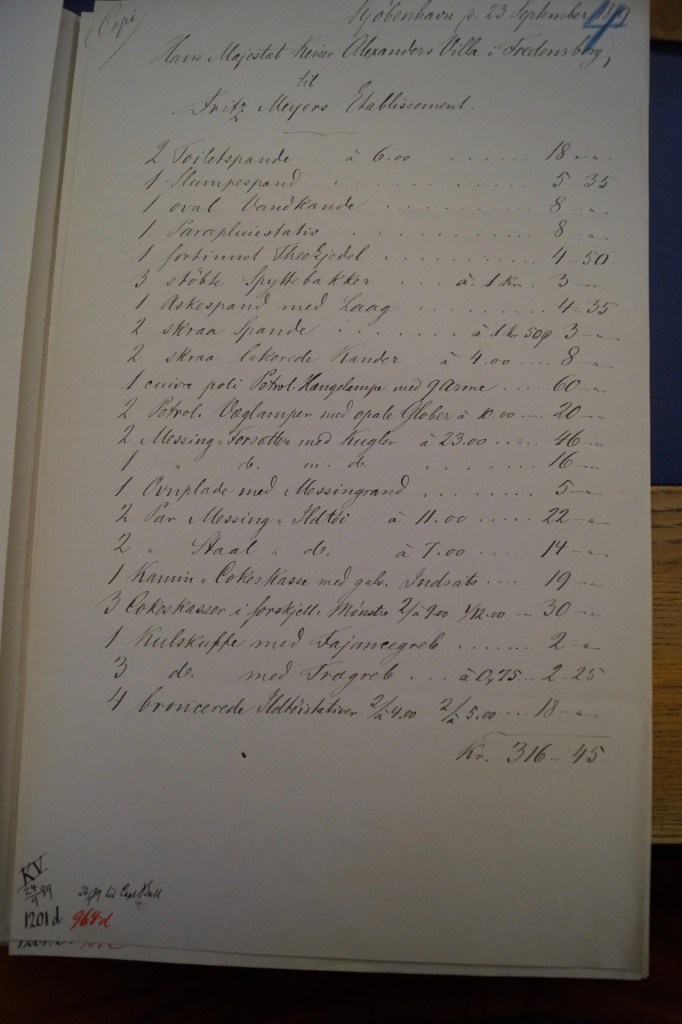 (Copi)
Kjöbenhavn p. 23 September
Hans Majestæt Keiser Alexanders Villa i Fredensborg,
til
Fritz Meyers Etablissement.
2 Toiletspande à 6.00 ...... 18 - "
1 Slumpespand .......... 5 - 35
1 oval Vandkande ....... 8 - "
1 Parapluiestativ ....... 8 - "
1 fortinnet Theekjedel ....... 4 - 50
3 støbte Spyttebakker ... à 1 Kr. 3 - "
1 Askespand med Laag ........ 4 - 35
2 skraa Spande ...... à 1 Kr 50ø 3 - "
2 skraa lakerede Kander à 4.00 ... 8 - "
1 cuivre poli Petrol. Hængelampe med 9 Arme .... 60 - "
2 Petrol. Væglamper med opale Glober à 10.00 ... 20 - "
2 Messing Forsættere med Kugler à 23.00 .... 46 - "
1 " do. m. do. ...... 16 - "
1 Ovnplade med Messingrand ........ 5 - "
2 Par Messing Ildtöi à 11.00 ..... 22 - "
2 " Staal " do. à 7.00 ..... 14 - "
1 Kamin Cokeskasse med galv. Indsats .... 19 - "
3 Cokeskasser i forskjell. Mønstre 2/à 9.00 1/12.00 ... 30 - "
1 Kulskuffe med Fajancegreb ....... 2 - "
3 do. med Trægreb ... à 0,75 ... 2 - 25
4 broncerede Ildtöistativer 2/à 4.00 2/à 5.00 ... 18 - "
Kr. 316 - 45
KV
24/9 89
26/9 89 til Capt. Bull
1201 d 964 d